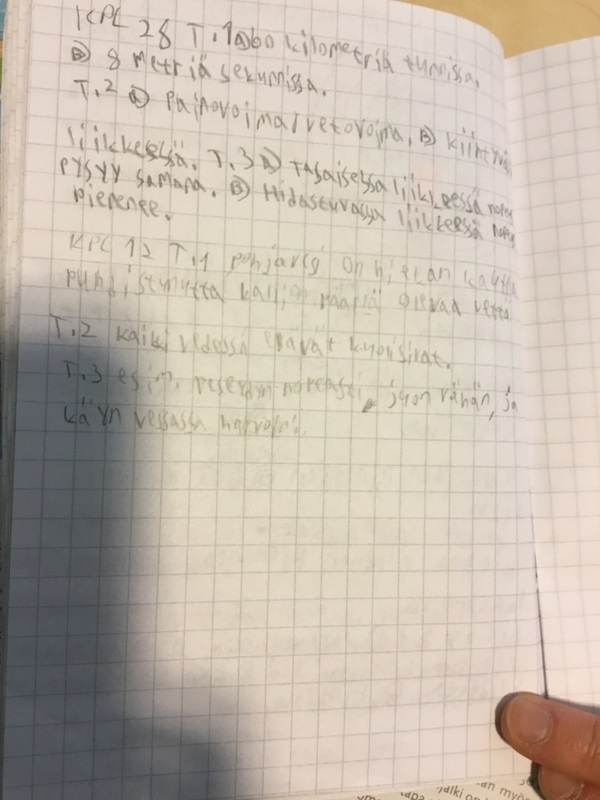 KPL 28 T.1 A) 60 kilometriä tunnissa.
B) 8 metriä sekunnissa.
T.2 A) Painovoima/vetovoima, B) kiihtyvä
liikkeessä. T.3 A) Tasaisessa liikkeessä
pysyy samana. B) Hidastuvassa liikkeessä
pienenee.
KPL 12 T.1 pohjavesi on hiekan kautta
puhdistunutta kallion päällä olevaa vettä
T.2 kaikki vedessä elävät
T.3 esim. peseydyn nopeasti, juon vähän, ja
käyn vessassa harvoin.